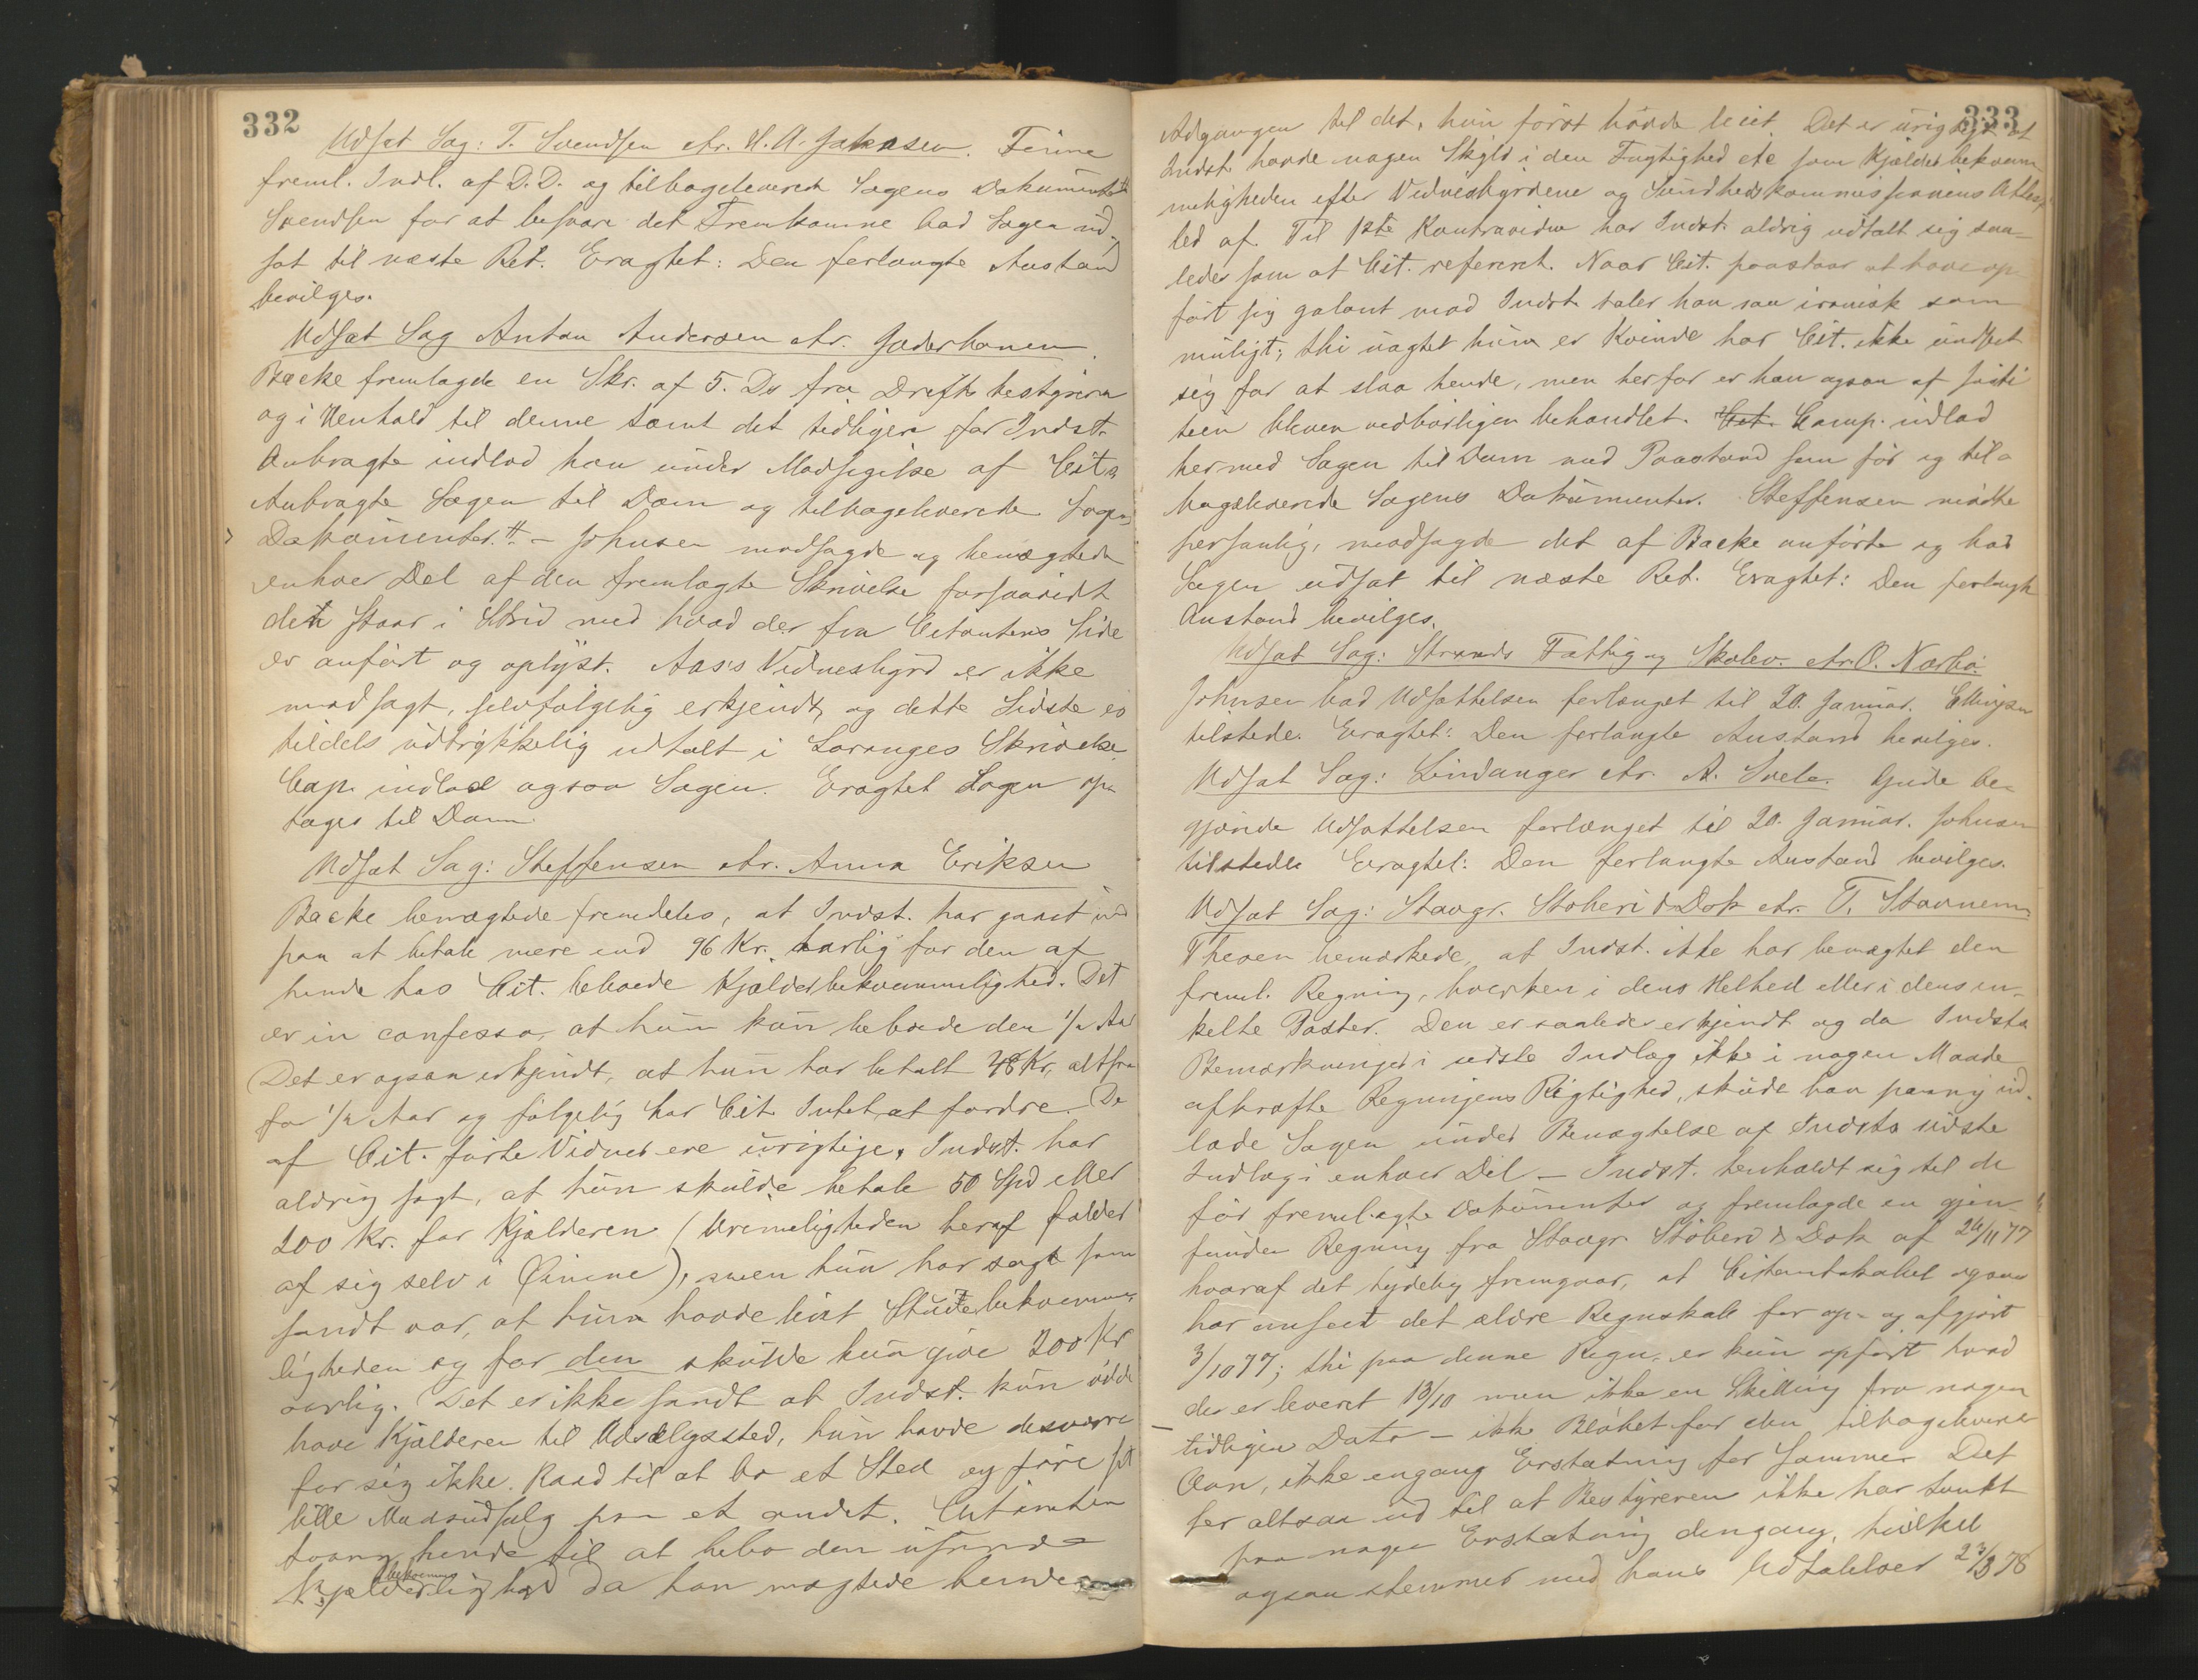 332
Udsat Sag: T. Svendsen ctr. H. A. Jakobsen. Feine
freml. Indl. af D.D. og tilbageleverede Sagens Dokumenter
Svendsen for at besvare det Fremkomne bad Sagen ud-
sat til næste Ret. Eragtet: Den forlangte Anstand
bevilges.
Udsat Sag Anton Andersen ctr. Jæderbanen.
Backe fremlagde en Skr. af 5. Ds fra Driftsbestyreren
og i Henhold til denne samt det tidligere for Indst.
Anbragte indlod han under Modsigelse af Cits
Anbragte Sagen til Dom og tilbageleverede Sagens
Dokumenter. - Johnsen modsagde og benægtede
enhver Del af den fremlagte Skrivelse forsaavidt
den staar i Strid med hvad der fra Citantens Side
er anført og oplyst. Aas's Vidnesbyrd er ikke
modsagt, selvfølgelig erkjendt, og dette Sidste er
tildels udtrykkelig udtalt i Loranges Skrivelse
Cap. indlod ogsaa Sagen. Eragtet Sagen op-
tages til Dom.
Udsat Sag: Steffensen ctr. Anna Eriksen
Backe benægtede fremdeles, at Indst. har gaaet ind
paa at betale mere end 96 Kr. aarlig for den af
hende hos Cit. beboede Kjælderbekvemmelighed. Det
er in confesso, at hun kun beboede den 1/2 Aar
Det er ogsaa erkjendt, at hun har betalt 48 Kr, altsaa
for 1/2 Aar og følgelig har Cit. Intet at fordre. De
af Cit. førte Vidner ere urigtige. Indst. har
aldrig sagt, at hun skulde betale 50 Spd eller
200 Kr. for Kjælderen (Urimeligheden heraf falder
af sig selv i Øinene), men hun har sagt som
sandt var, at hun havde leiet Stuebekvemme-
ligheden og for den skulde hun give 200 Kr
aarlig. Det er ikke sandt at Indst. kun vilde
have Kjælderen til Udsalgssted, hun havde desværre
for sig ikke Raad til at bo et Sted og føre sit
lille Madudsalg paa et andet. Citanten
tvang hende til at bebo den usunde
bekvemme
Kjælderlighed da han nægtede hende
333
Adgangen til det, hun først havde leiet. Det er urigtigt at
Indst. havde nogen Skyld i den Fugtighed etc som Kjælderbekvem-
meligheden efter Vidnesbyrdene og Sundhedskommissionens Attest
led af. Til 1ste Kontravidne har Indst. aldrig udtalt sig saa-
ledes som af Cit. refereret. Naar Cit. paastaar at have op-
ført sig galant mod Indst. taler han saa ironisk som
muligt; thi uagtet hun er Kvinde har Cit. ikke undseet
sig for at slaa hende, men herfor er han ogsaa af Justi-
tien bleven vedbørligen behandlet. Cit. Comp. indlod
hermed Sagen til Dom med Paastand som før og til-
bageleverede Sagens Dokumenter. Steffensen mødte
personlig, modsagde det af Backe anførte og bad
Sagen udsat til næste Ret. Eragtet: Den forlangte
Anstand bevilges.
Udsat Sag: Strands Fattig og Skolev. ctr. O. Nærbø.
Johnsen bad Udsættelsen forlænget til 20. Januar. Ellingsen
tilstede. Eragtet: Den forlangte Anstand bevilges.
Udsat Sag: Lindanger ctr. A. Svele. Gude be-
gjærede Udsættelsen forlænget til 20. Januar. Johnsen
tilstede. Eragtet: Den forlangte Anstand bevilges.
Udsat Sag: Stavgr. Støberi & Dok ctr. T. Stavnem.
Thesen bemærkede, at Indst. ikke har benægtet den
freml. Regning, hverken i dens Helhed eller i dens en-
kelte Poster. Den er saaledes erkjendt og da Indsts
Bemærkninger i sidste Indlæg ikke i nogen Maade
afkræfte Regningens Rigtighed, skulde han paany ind-
lade Sagen under Benægtelse af Indsts sidste
Indlæg i enhver Del. - Indst. henholdt sig til de
før fremlagte Dokumenter og fremlagde en gjen-
funden Regning fra Stavgr Støberi & Dok af 24/11 77
hvoraf det tydelig fremgaar, at Citantskabet ogsaa
har anseet det ældre Regnskab for op- og afgjort
3/10 77; thi paa denne Regn. er kun opført hvad
der er leveret 13/10 men ikke en Skilling fra nogen
tidligere Dato - ikke Beløbet for den tilbageleverede
Ovn, ikke engang Erstatning for Samme. Det
ser altsaa ud til at Bestyreren ikke har tænkt
paa nogen Erstatning dengang, hvilket
ogsaa stemmer med hans Udtalelser 23/3 78